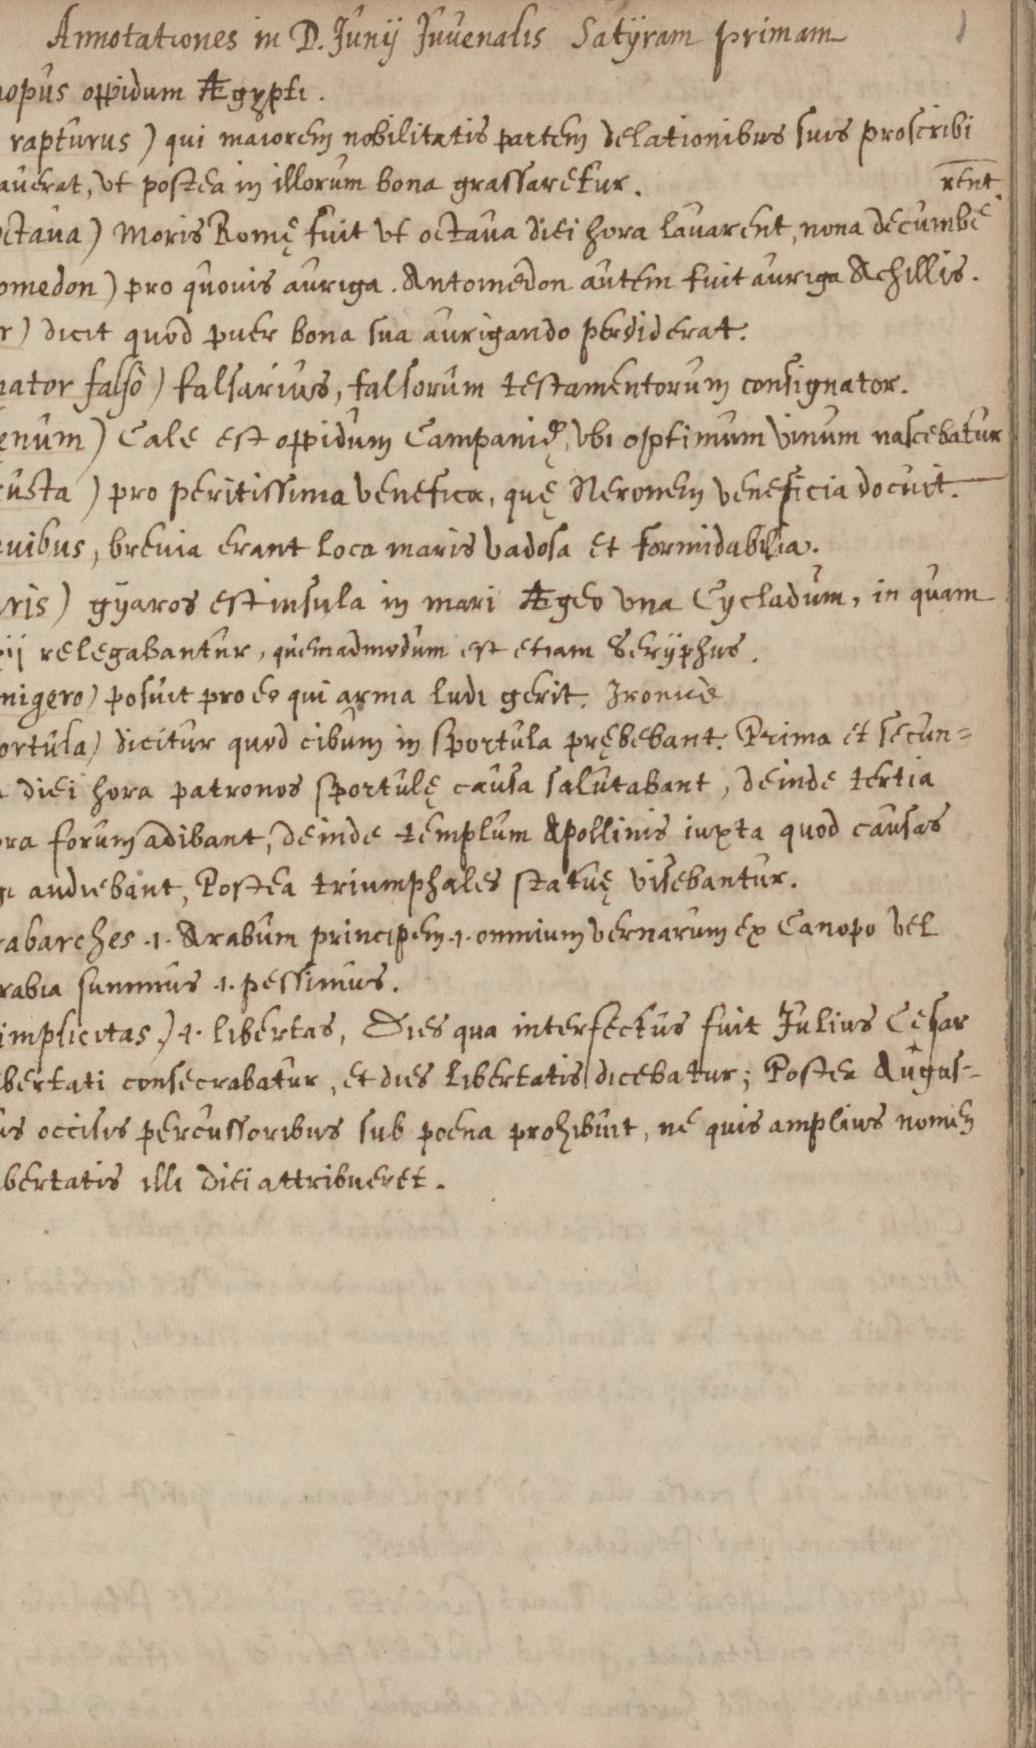 Annotationes in D. Junij Juvenalis Satÿram primam 1
nopus oppidum Ægypti.
rapturus) qui maiorem nobilitatis partem delationibus suis proscribi
averat, ut postea in illorum bona grassaretur.
rent.
octava) Moris Romę fuit ut octava diei hora lavarent, nona decumbe
omedon) pro quovis auriga. Antomedon autem fuit auriga Achillis.
r) dicit quod puer bona sua aurigando perdiderat.
nator falsò) falsarius, falsorum testamentorum consignator.
enum) Cale est oppidum Campanię, ubi optimum vinum nascebatur
custa) pro peritissima venefica, quę Neronem veneficia docuit.
evibus, brevia erant loca maris vadosa et formidabilia.
aris) gÿaros est insula in mari Ægeo una Cycladum, in quam
ij relegabantur, quemadmodum est etiam Serÿphus.
nigero) posuit pro eo qui arma ludi gerit. Ironicè
ortula) dicitur quod cibum in sportula prębebant. Prima et secun=
a diei hora patronos sportulę causa salutabant, deinde tertia
ora forum adibant, deinde templum Apollinis iuxta quod causas
gi audiebant, Postea triumphales statuę visebantur.
rabarches .1. Arabum principem .1. omnium vernarum ex Canopo vel
rabia summus .1. pessimus.
implicitas) .1. libertas, Dies qua interfectus fuit Julius Cesar
bertati consecrabatur, et dies libertatis dicebatur; Postea Augus=
us occisis percussoribus sub poena prohibuit, ne quis amplius nomen
bertatis illi diei attribueret.